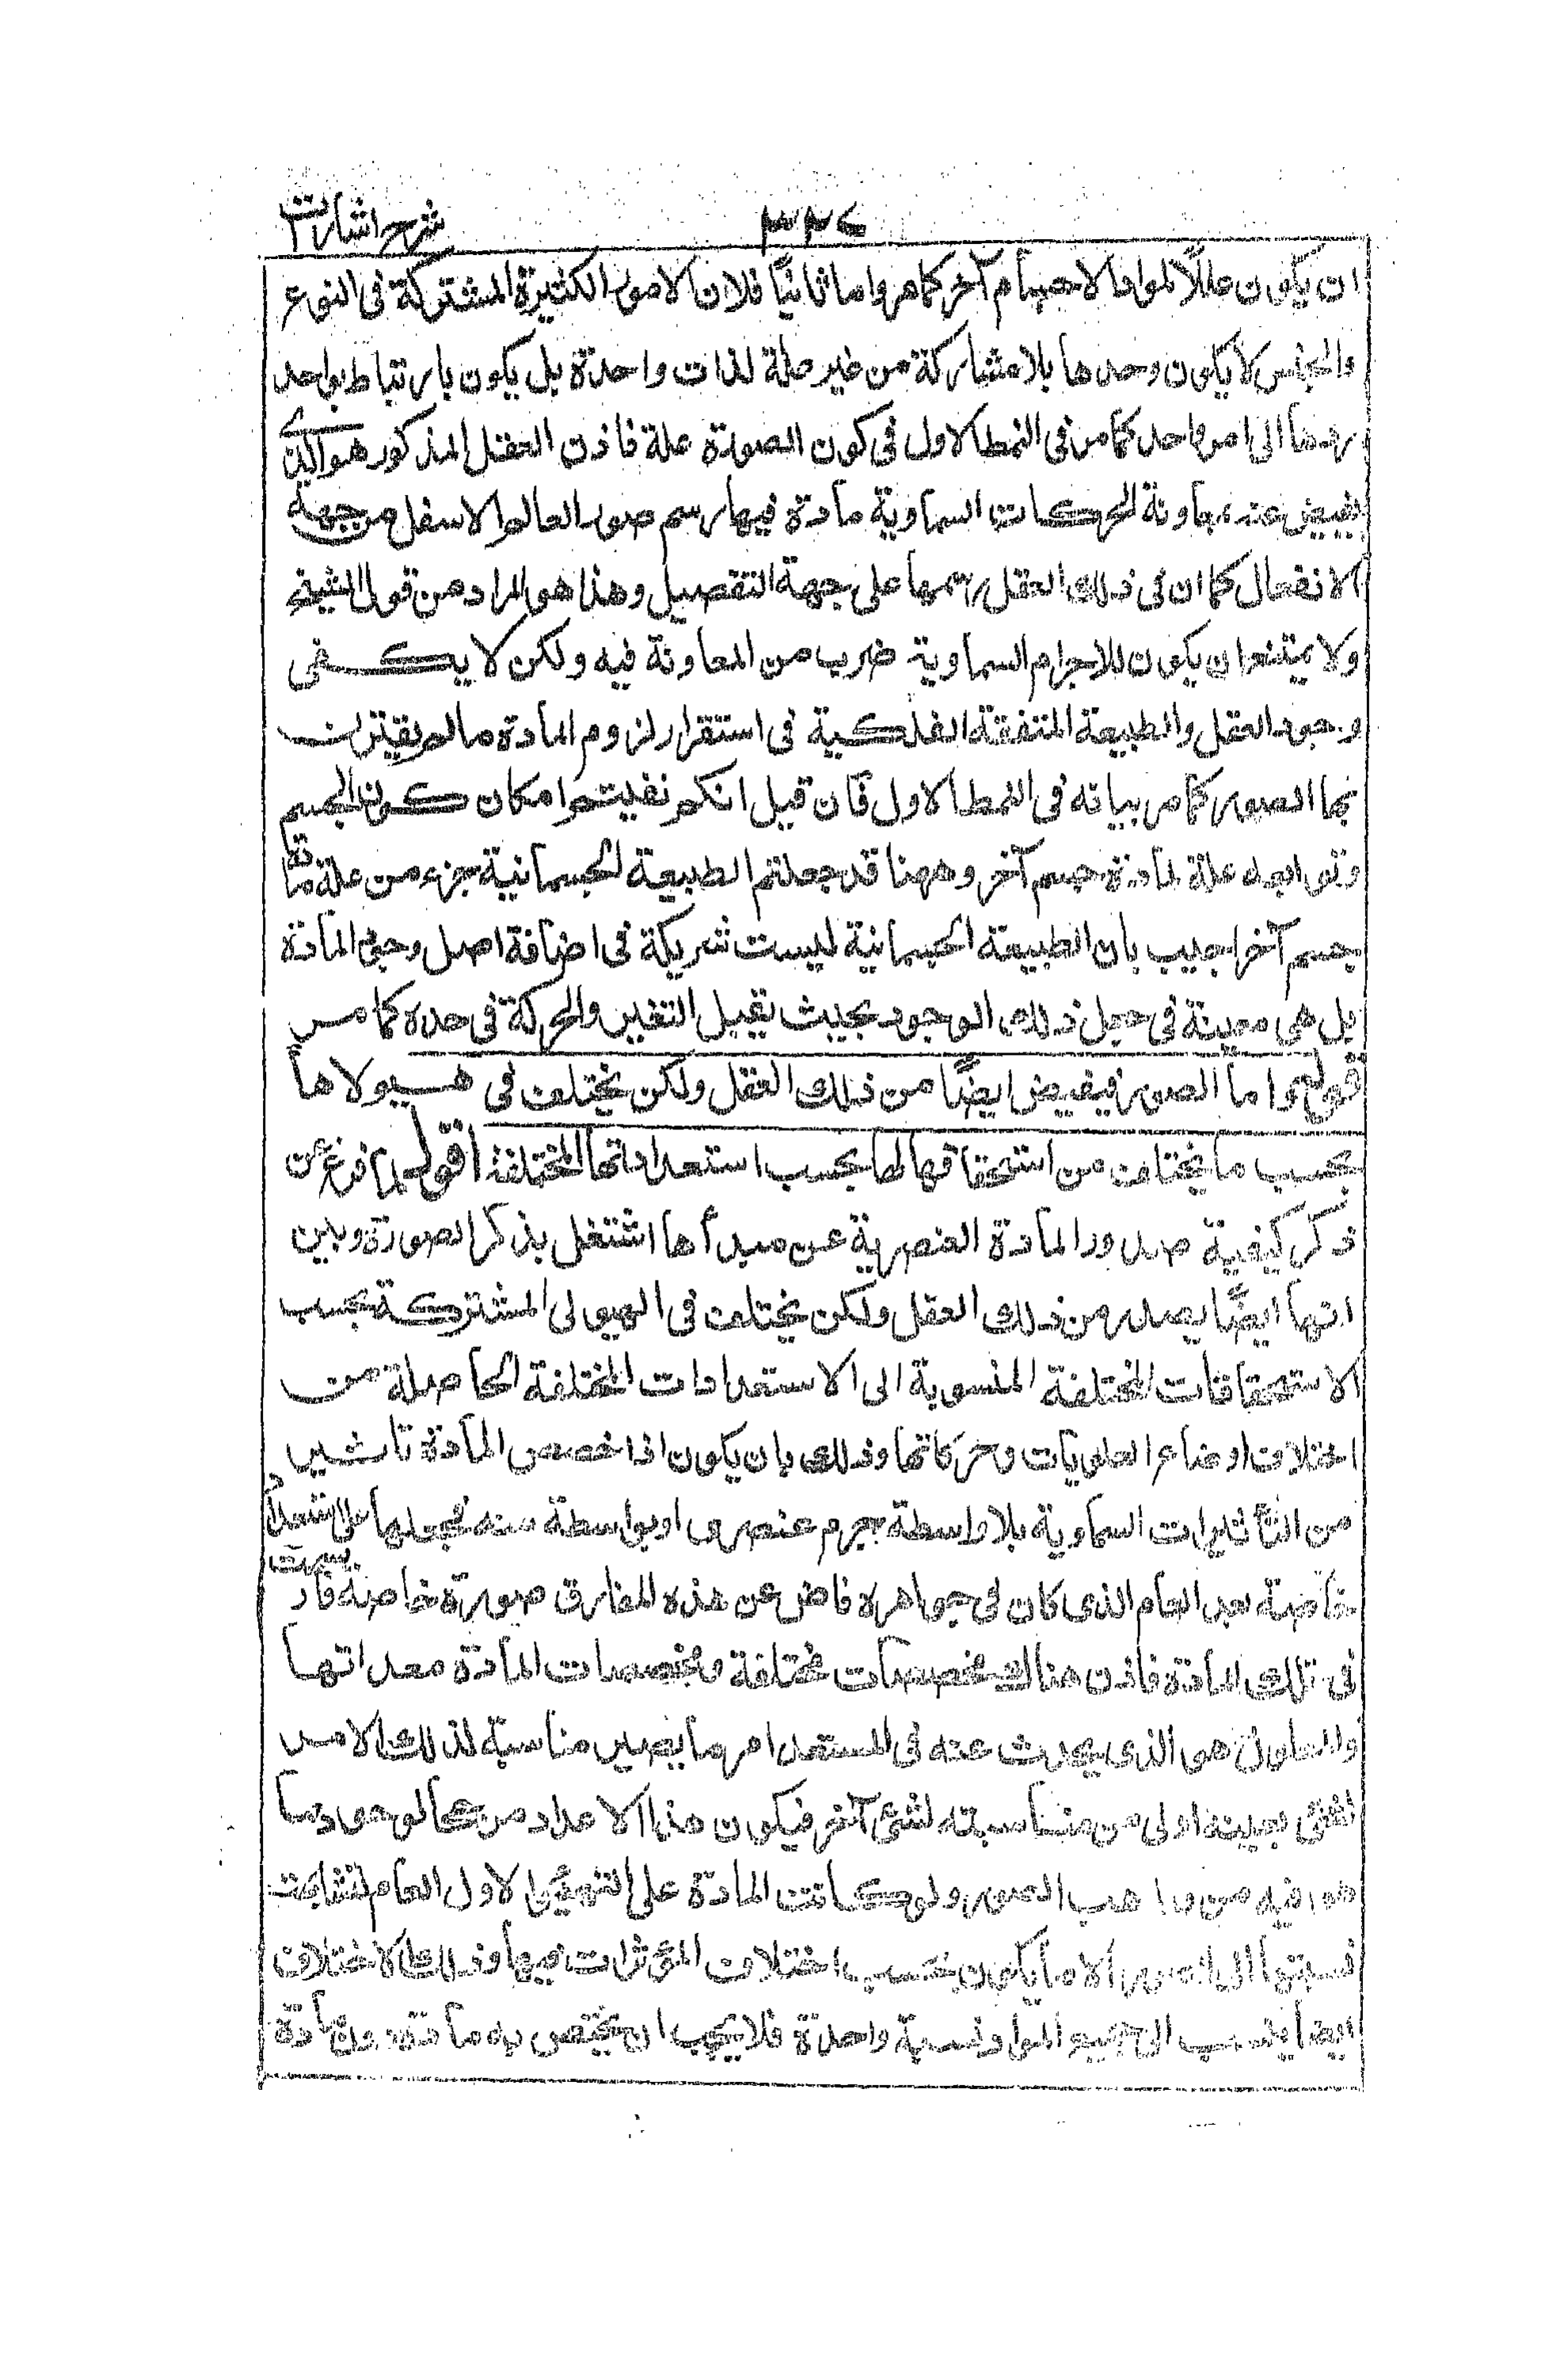 شرح اشارات
ان يكون عللا لمواد الاجسام آخر كما مر واما ثانيًا فلان الامور الكثيرة المشتركة فى النوع
والجنس لا يكون وحدها بلا مشاركة من غير علة لذات واحدة بل يكون بارتباط بواحد
يردها الى امر واحد كما مر فى النمط الاول فى كون الصورة علة فاذن العقل المذكور هو الذى
يفيض عنه بمعاونة الحركات السماوية مادة فيها رسم صور العالم الاسفل من جهة
الانفعال كما ان فى ذلك العقل رسمها على جهة التفصيل وهذا هو المراد من قول الشيخ
ولا يمتنع ان يكون للاجرام السماوية ضرب من المعاونة فيه ولكن لا يكفى
وجود العقل والطبيعة المتفقة الفلكية فى استقرار لزوم المادة ما لم يقترن
بها الصور كما مر بيانه فى النمط الاول فان قيل انكم نفيتم امكان كون الجسم
وتوابعه علة لمادة جسم آخر وههنا قد جعلتم الطبيعة الجسمانية جزء من علة مادة
جسم آخر اجيب بان الطبيعة الجسمانية ليست شريكة فى اضافة اصل وجود المادة
بل هى معينة فى جعل ذلك الوجود بحيث يقبل التغير والحركة فى حده كما مر
قوله واما الصور فيفيض ايضًا من ذلك العقل ولكن يختلف فى هيولاها
بحسب ما يختلف من استحقاقها لها بحسب استعداداتها المختلفة اقول لما فرغ عن
ذكر كيفية صدور المادة العنصرية عن مبدأها اشتغل بذكر الصورة وبين
انها ايضًا يصدر من ذلك العقل ولكن يختلف فى الهيولى المشتركة بحسب
الاستحقاقات المختلفة المنسوبة الى الاستعدادات المختلفة الحاصلة من
اختلاف اوضاع العلويات وحركاتها وذلك بان يكون اذا خصص المادة تاثير
من التأثيرات السماوية بلا واسطة جرم عنصرى او بواسطة منه فجعلها على استعداد
خاصة بعد العام الذى كان فى جواهره فاض عن هذه المفارق صورة خاصة فارتسمت
فى تلك المادة فاذن هناك مخصصات مختلفة ومخصصات المادة معداتها
والمعد هو الذى يحدث عنه فى المستعد امر ما يصير مناسبة لذلك الامر
لشئ بعينه اولى من مناسبته لشئ آخر فيكون هذا الاعداد مرجحا لوجود ما
هو فيه من واهب الصور ولو كانت المادة على التهيؤ الاول العام لتشابهت
نسبتها الى الضدين الا ما يكون بحسب اختلاف المؤثرات فيها وذلك الاختلاف
ايضا ينسب الى جميع المواد نسبة واحدة فلا يجب ان يختص به مادة دون مادة